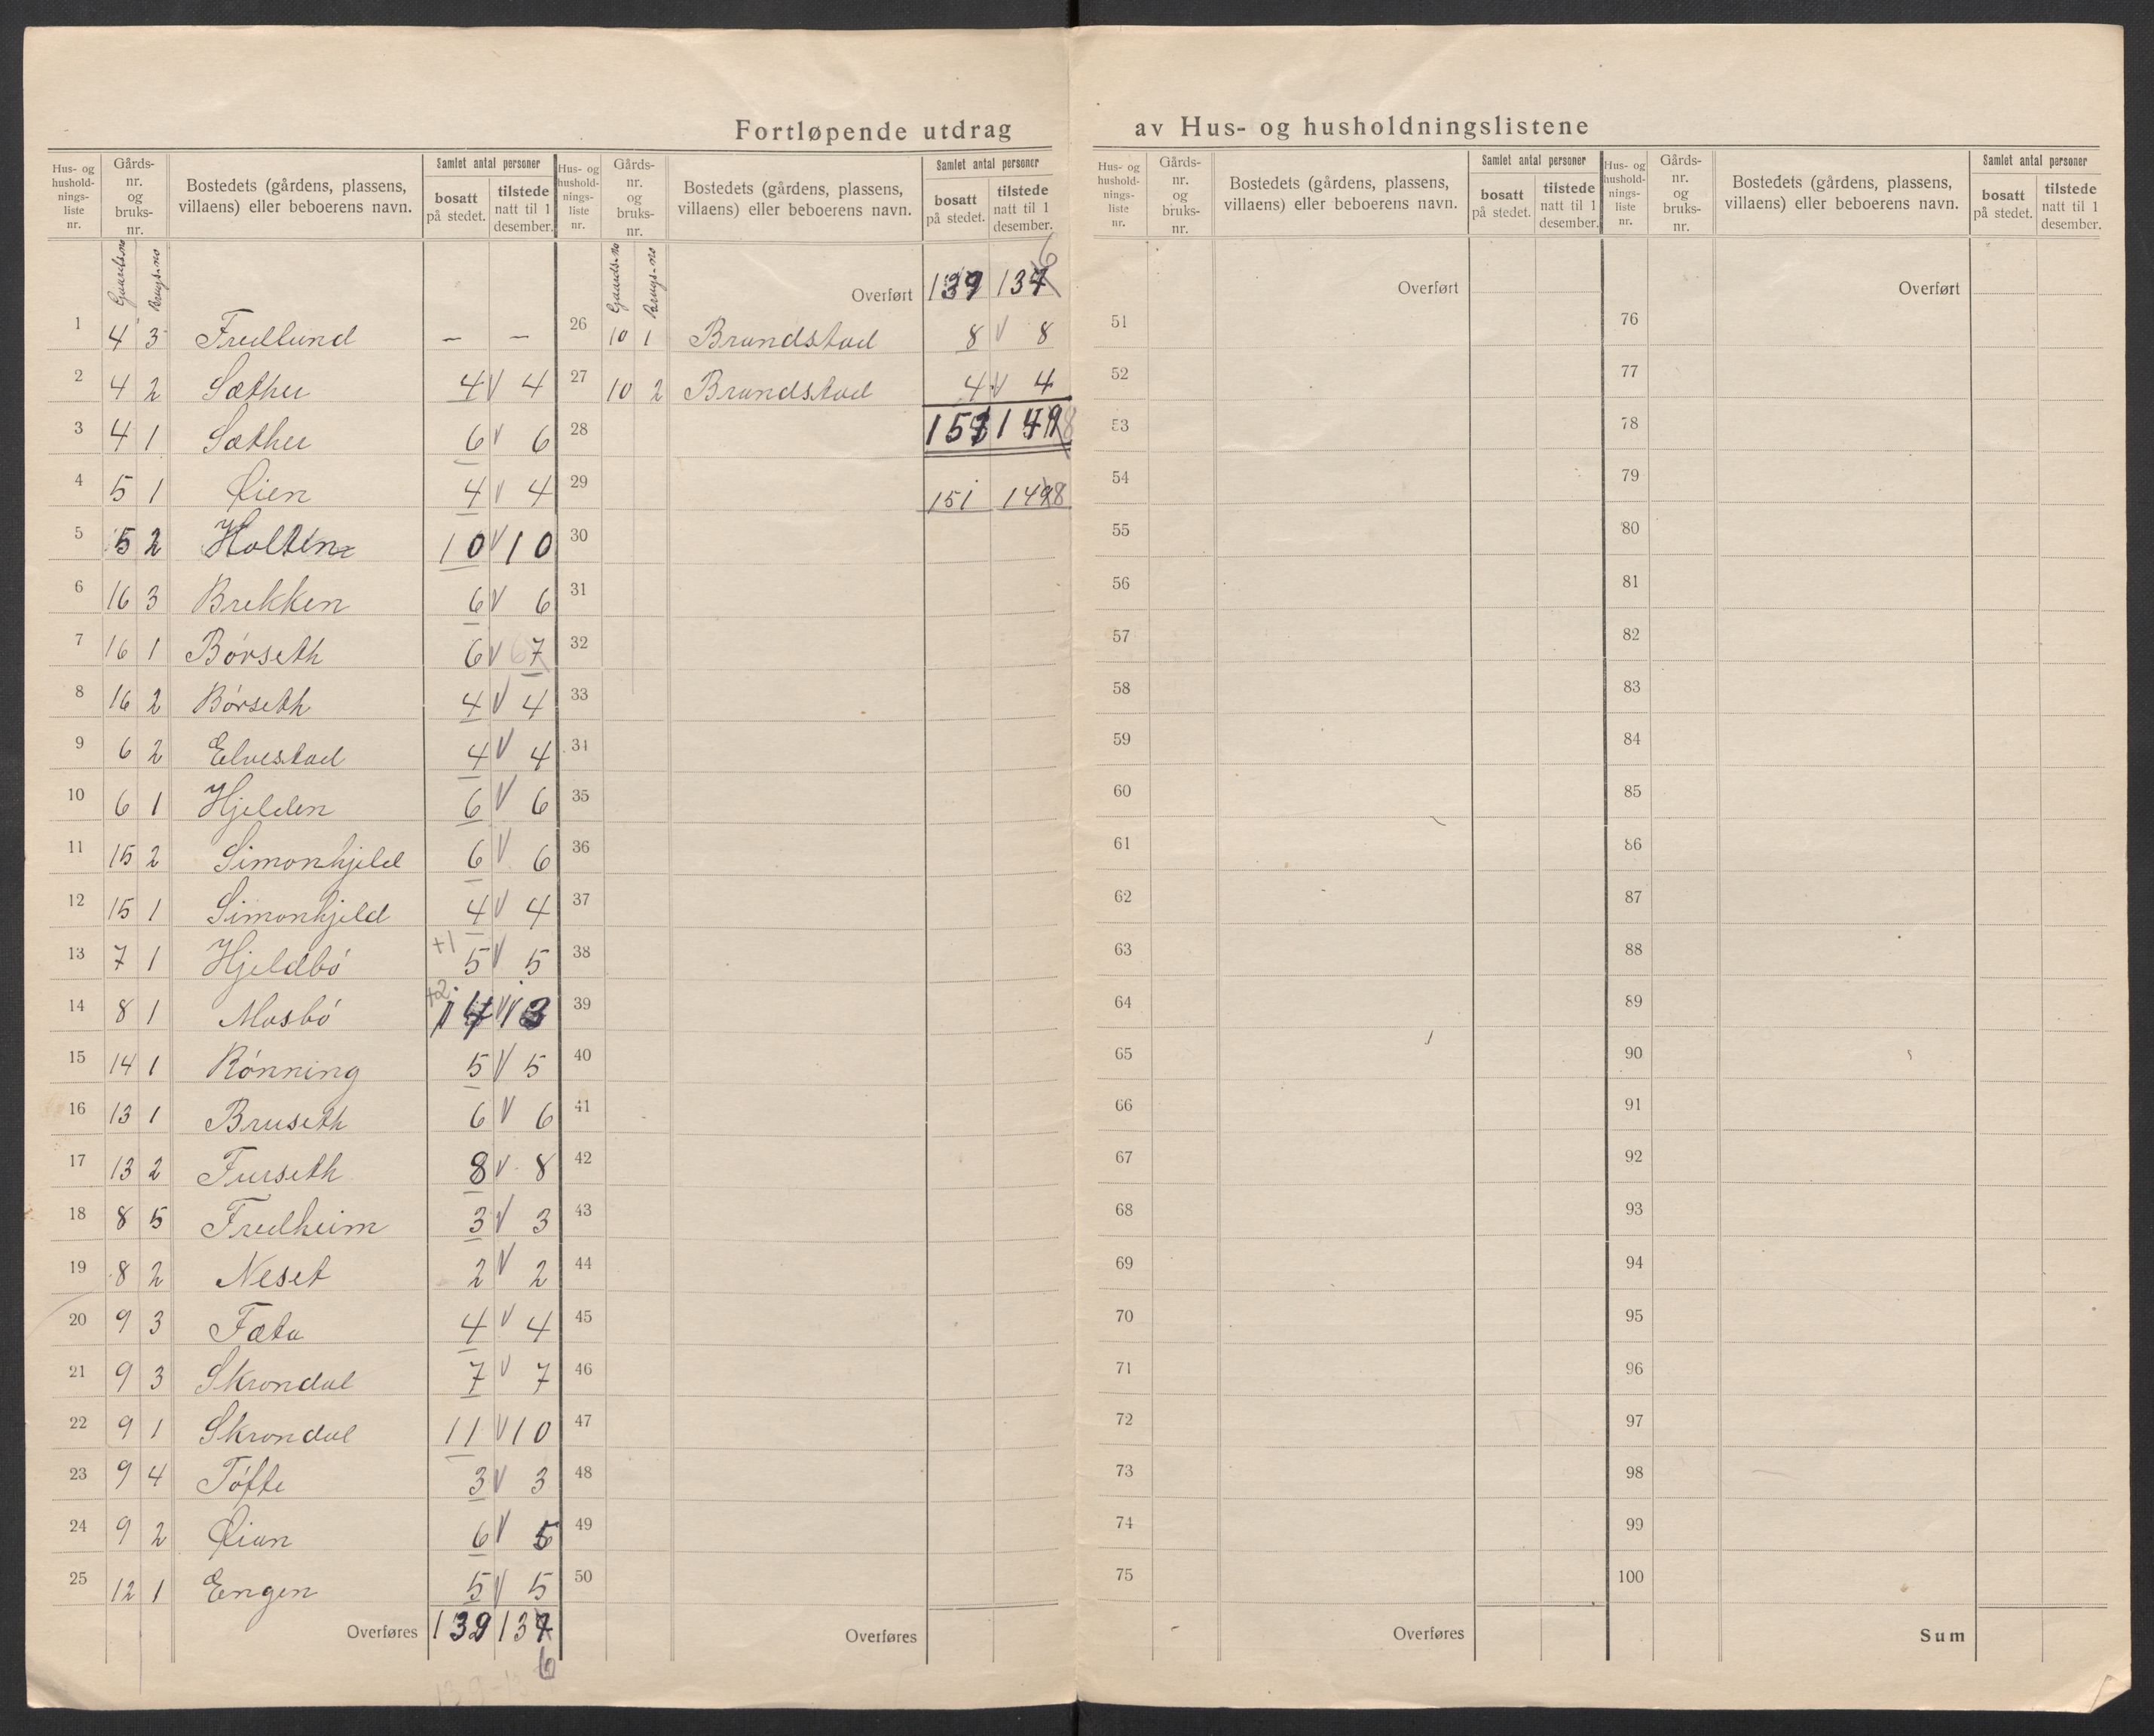 Fortløpende utdrag av Hus- og husholdningslistene
Hus- og husholdningsliste nr. Gårdsnr. og bruksnr. Bostedets (gårdens, plassens, villaens) eller beboerens navn. Samlet antal personer bosatt på stedet. tilstede natt til 1 desember.
Gaards-no Brugs-no
1 4 3 Fredlund – –
2 4 2 Sæther 4 V 4
3 4 1 Sæther 6 V 6
4 5 1 Øien 4 V 4
5 5 2 Holten 10 V 10
6 16 3 Brekken 6 V 6
7 16 1 Børseth 6 V 6 7
8 16 2 Børseth 4 V 4
9 6 2 Elvestad 4 V 4
10 6 1 Hjelden 6 V 6
11 15 2 Simonhjeld 6 V 6
12 15 1 Simonhjeld 4 V 4
13 7 1 Hjeldbø +1 5 V 5
14 8 1 Mosbø +2 14 V 13
15 14 1 Rønning 5 V 5
16 13 1 Bruseth 6 V 6
17 13 2 Furseth 8 V 8
18 8 5 Fredheim 3 V 3
19 8 2 Neset 2 V 2
20 9 3 Fæta 4 V 4
21 9 3 Skrondal 7 V 7
22 9 1 Skrondal 11 V 10
23 9 4 Tøfte 3 V 3
24 9 2 Øian 6 V 5
25 12 1 Engen 5 V 5
Overføres 139 137
6
Hus- og husholdningsliste nr. Gårdsnr. og bruksnr. Bostedets (gårdens, plassens, villaens) eller beboerens navn. Samlet antal personer bosatt på stedet. tilstede natt til 1 desember.
Gaards-no Brugs-no
Overført 139 137 6
26 10 1 Brandstad 8 V 8
27 10 2 Brandstad 4 V 4
28 151 149 8
29 151 149 8
30
31
32
33
34
35
36
37
38
39
40
41
42
43
44
45
46
47
48
49
50
Overføres
Hus- og husholdningsliste nr. Gårdsnr. og bruksnr. Bostedets (gårdens, plassens, villaens) eller beboerens navn. Samlet antal personer bosatt på stedet. tilstede natt til 1 desember.
Overført
51
52
53
54
55
56
57
58
59
60
61
62
63
64
65
66
67
68
69
70
71
72
73
74
75
Overføres
Hus- og husholdningsliste nr. Gårdsnr. og bruksnr. Bostedets (gårdens, plassens, villaens) eller beboerens navn. Samlet antal personer bosatt på stedet. tilstede natt til 1 desember.
Overført
76
77
78
79
80
81
82
83
84
85
86
87
88
89
90
91
92
93
94
95
96
97
98
99
100
Sum